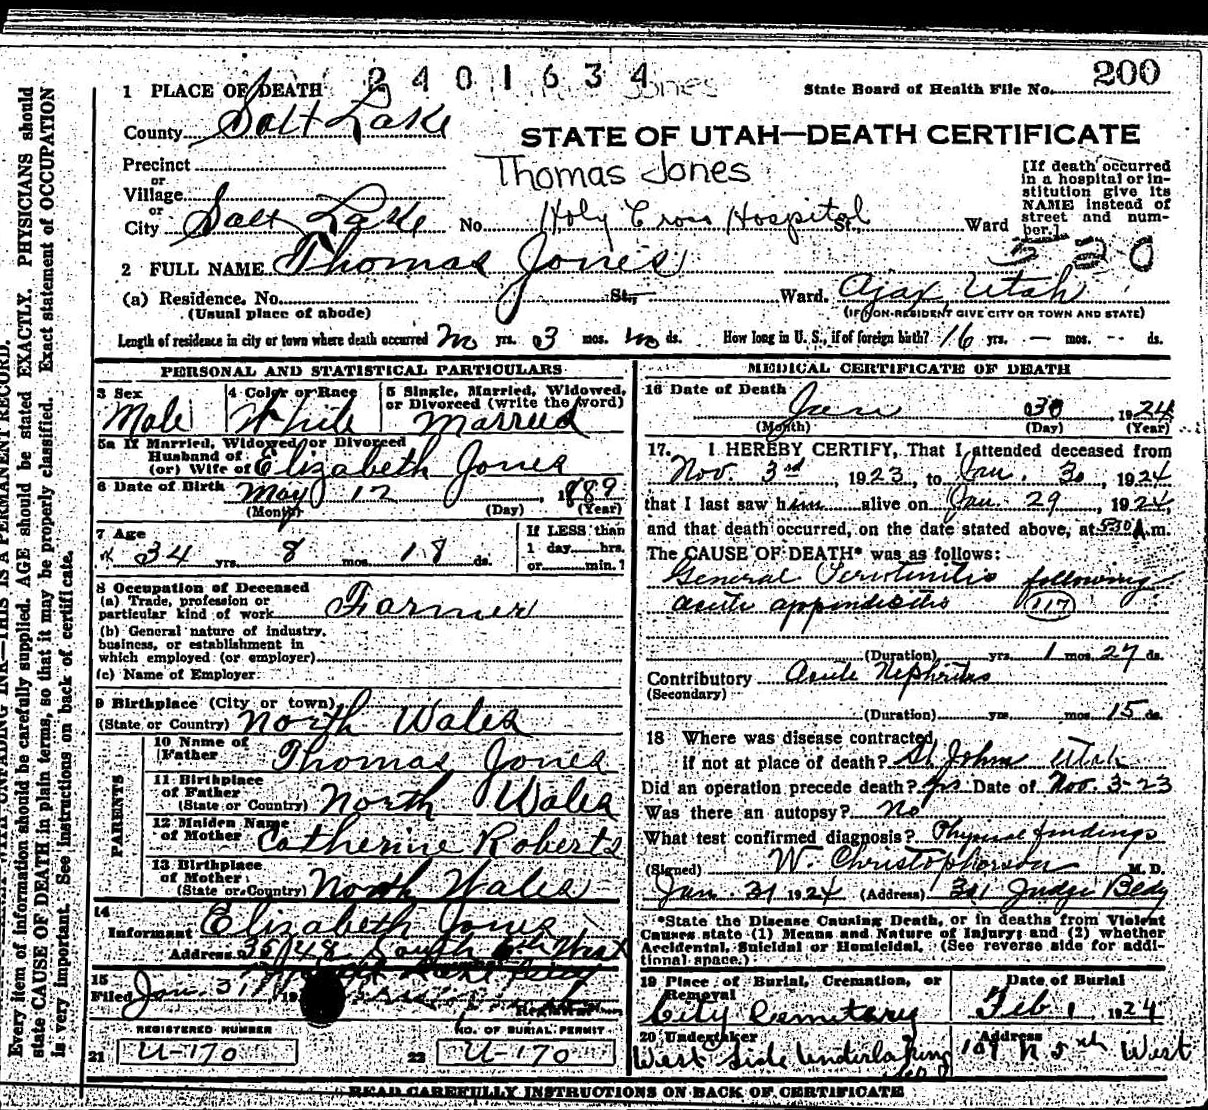 2401634
Jones
State Board of Health File No. 200
1 PLACE OF DEATH
County Salt Lake
STATE OF UTAH—DEATH CERTIFICATE
Thomas Jones
Precinct
or
Village
or
City Salt Lake No. Holy Cross Hospital St., Ward
[If death occurred
in a hospital or in-
stitution give its
NAME instead of
street and num-
ber.]
2 FULL NAME Thomas Jones
(a) Residence. No. St., Ward. Ajax, Utah
(Usual place of abode) (IF NON-RESIDENT GIVE CITY OR TOWN AND STATE)
Length of residence in city or town where death occurred No yrs. 03 mos. no ds. How long in U. S., if of foreign birth? 16 yrs. — mos. -- ds.
PERSONAL AND STATISTICAL PARTICULARS
3 Sex
Male
4 Color or Race
White
5 Single, Married, Widowed,
or Divorced (write the word)
Married
5a If Married, Widowed or Divorced
Husband of
(or) Wife of Elizabeth Jones
6 Date of Birth May 12, 1889
(Month) (Day) (Year)
7 Age
34 yrs. 8 mos. 18 ds.
If LESS than
1 day hrs.
or min.?
8 Occupation of Deceased
(a) Trade, profession or
particular kind of work Farmer
(b) General nature of industry,
business, or establishment in
which employed (or employer)
(c) Name of Employer
9 Birthplace (City or town)
(State or Country) North Wales
PARENTS
10 Name of
Father Thomas Jones
11 Birthplace
of Father
(State or Country) North Wales
12 Maiden Name
of Mother Catherine Roberts
13 Birthplace
of Mother
(State or Country) North Wales
14
Informant Elizabeth Jones
Address South West
15
Filed Jan. 31 19
Registrar
REGISTERED NUMBER
21 U-170
NO. OF BURIAL PERMIT
22 U-170
MEDICAL CERTIFICATE OF DEATH
16 Date of Death
Jan 30, 1924
(Month) (Day) (Year)
17. I HEREBY CERTIFY, That I attended deceased from
Nov. 3rd, 1923, to Jan. 30, 1924
that I last saw him alive on Jan. 29, 1924,
and that death occurred, on the date stated above, at 530 A.m.
The CAUSE OF DEATH* was as follows:
General Peritonitis following
acute appendicitis (117)
(Duration) yrs. 1 mos. 27 ds.
Contributory Acute Nephritis
(Secondary)
(Duration) yrs. mos. 15 ds.
18 Where was disease contracted
if not at place of death? St. Johns Utah
Did an operation precede death? Yes Date of Nov. 3-23
Was there an autopsy? No
What test confirmed diagnosis? Physical findings
(Signed) W. Christopherson M. D.
Jan. 31 1924 (Address) 301 Judge Bldg
*State the Disease Causing Death, or in deaths from Violent
Causes state (1) Means and Nature of Injury; and (2) whether
Accidental, Suicidal or Homicidal. (See reverse side for addi-
tional space.)
19 Place of Burial, Cremation, or
Removal
City Cemetary
Date of Burial
Feb 1, 1924
20 Undertaker
West Side Undertaking
Address
109 N 5th West
READ CAREFULLY INSTRUCTIONS ON BACK OF CERTIFICATE
Every item of information should be carefully supplied. AGE should be stated EXACTLY. PHYSICIANS should
state CAUSE OF DEATH in plain terms, so that it may be properly classified. Exact statement of OCCUPATION
is very important. See instructions on back of certificate.